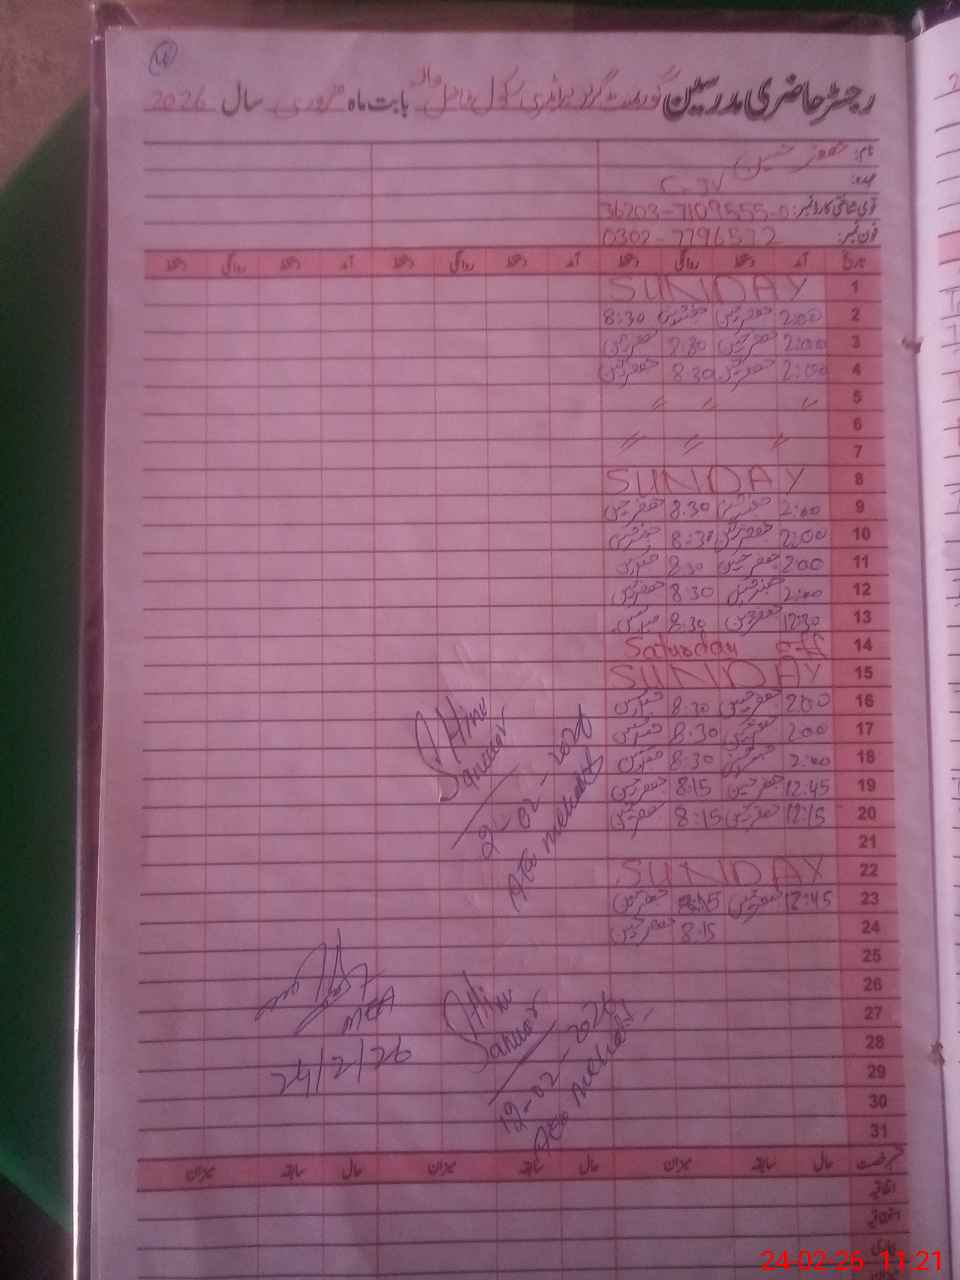 رجسٹر حاضری مدرسین گورنمنٹ گرلز پرائمری سکول فاضل والا بابت ماہ فروری سال 2026
نام: جعفر حسین
عہدہ: C.TV
قومی شناختی کارڈ نمبر: 36203-7109555-0
فون نمبر: 0302-7796572
تاریخ آمد دستخط روانگی دستخط آمد دستخط روانگی دستخط آمد دستخط روانگی دستخط
1 SUNDAY
2 2:00 جعفر حسین جعفر حسین 8:30
3 2:00 جعفر حسین 8:30 جعفر حسین
4 2:00 جعفر حسین 8:30 جعفر حسین
5 〃 〃 〃
6
7 〃 〃 〃
8 SUNDAY
9 2:00 جعفر حسین 8.30 جعفر حسین
10 2:00 جعفر حسین 8:30 جعفر حسین
11 200 جعفر حسین 8:30 جعفر حسین
12 2:00 جعفر حسین 8:30 جعفر حسین
13 12:30 جعفر حسین 8:30 جعفر حسین
14 Saturday off
15 SUNDAY
16 200 جعفر حسین 8.30 جعفر حسین
17 200 جعفر حسین 8:30 جعفر حسین
18 2:00 جعفر حسین 8:30 جعفر حسین
19 12:45 جعفر حسین 8:15 جعفر حسین
20 12:15 جعفر حسین 8:15 جعفر حسین
21
22 SUNDAY
23 12:45 جعفر حسین 8:15 جعفر حسین
24 8:15 جعفر حسین
25
26
27
28
29
30
31
2-02-2026
MEA
24/2/26
12-02-2026
قسم رخصت حال سابقہ میزان حال سابقہ میزان حال سابقہ میزان
اتفاقیہ
استحقاقیہ
بیماری
24-02-26 11:21